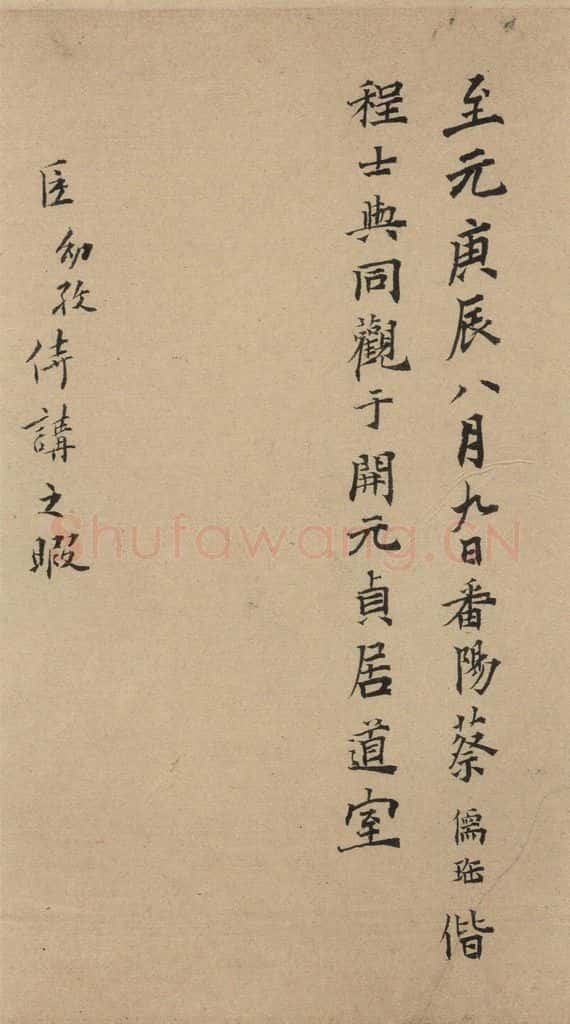 至元庚辰八月九日番陽蔡儒珤偕
程士與同觀于開元貞居道室
侍講之暇
Shufawang.CN